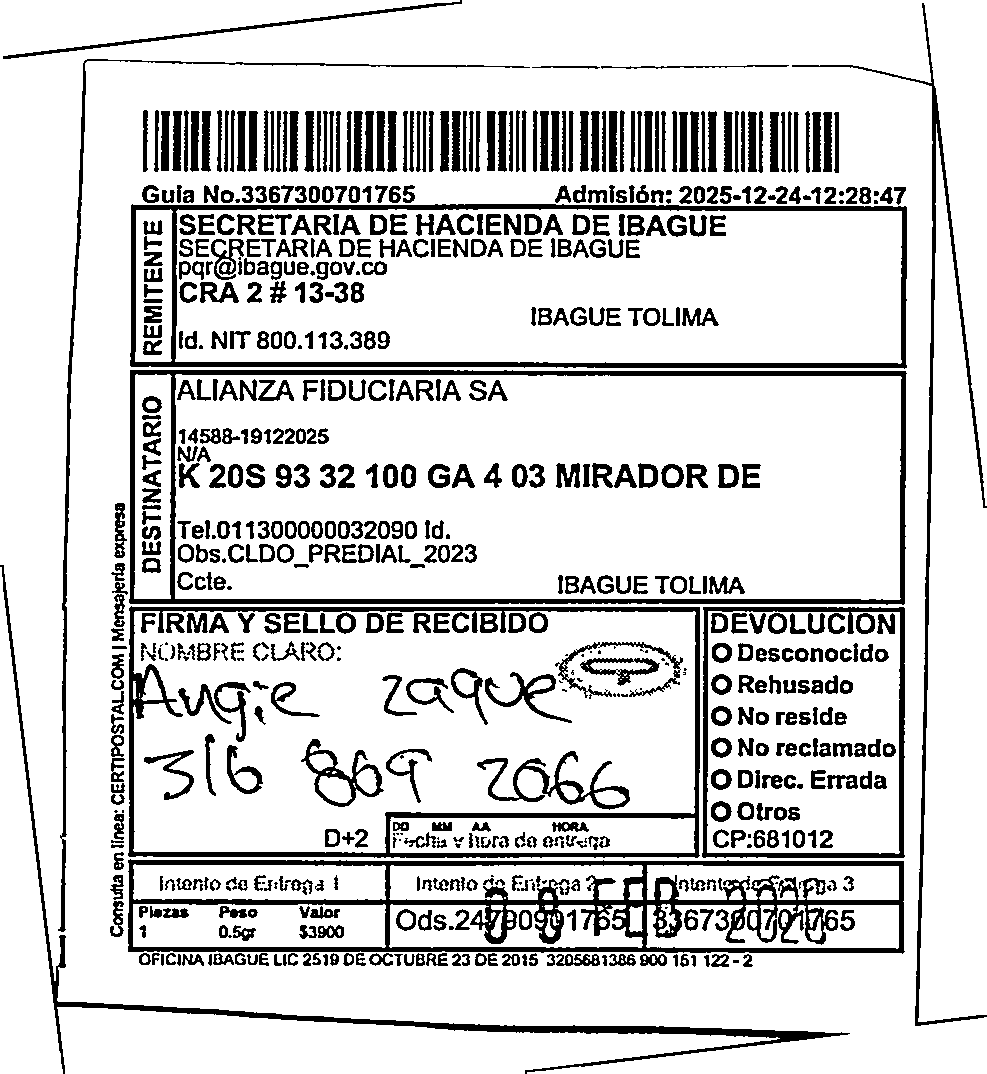 Guia No.3367300701765 Admisión: 2025-12-24-12:28:47
REMITENTE
SECRETARIA DE HACIENDA DE IBAGUE
SECRETARIA DE HACIENDA DE IBAGUE
pqr@ibague.gov.co
CRA 2 # 13-38
IBAGUE TOLIMA
Id. NIT 800.113.389
DESTINATARIO
ALIANZA FIDUCIARIA SA
14588-19122025
N/A
K 20S 93 32 100 GA 4 03 MIRADOR DE
Tel.011300000032090 Id.
Obs.CLDO_PREDIAL_2023
Ccte. IBAGUE TOLIMA
Consulta en línea: CERTIPOSTAL.COM | Mensajería expresa
FIRMA Y SELLO DE RECIBIDO
NOMBRE CLARO:
Angie zaque
316 869 2066
D+2
DD MM AA HORA
Fecha y hora de entrega
DEVOLUCION
Desconocido
Rehusado
No reside
No reclamado
Direc. Errada
Otros
CP:681012
Intento de Entrega 1 Intento de Entrega 2 Intento de Entrega 3
Piezas Peso Valor
1 0.5gr $3900
Ods.24790901765 3367300701765
FEB
OFICINA IBAGUE LIC 2519 DE OCTUBRE 23 DE 2015 3205681386 900 151 122 - 2